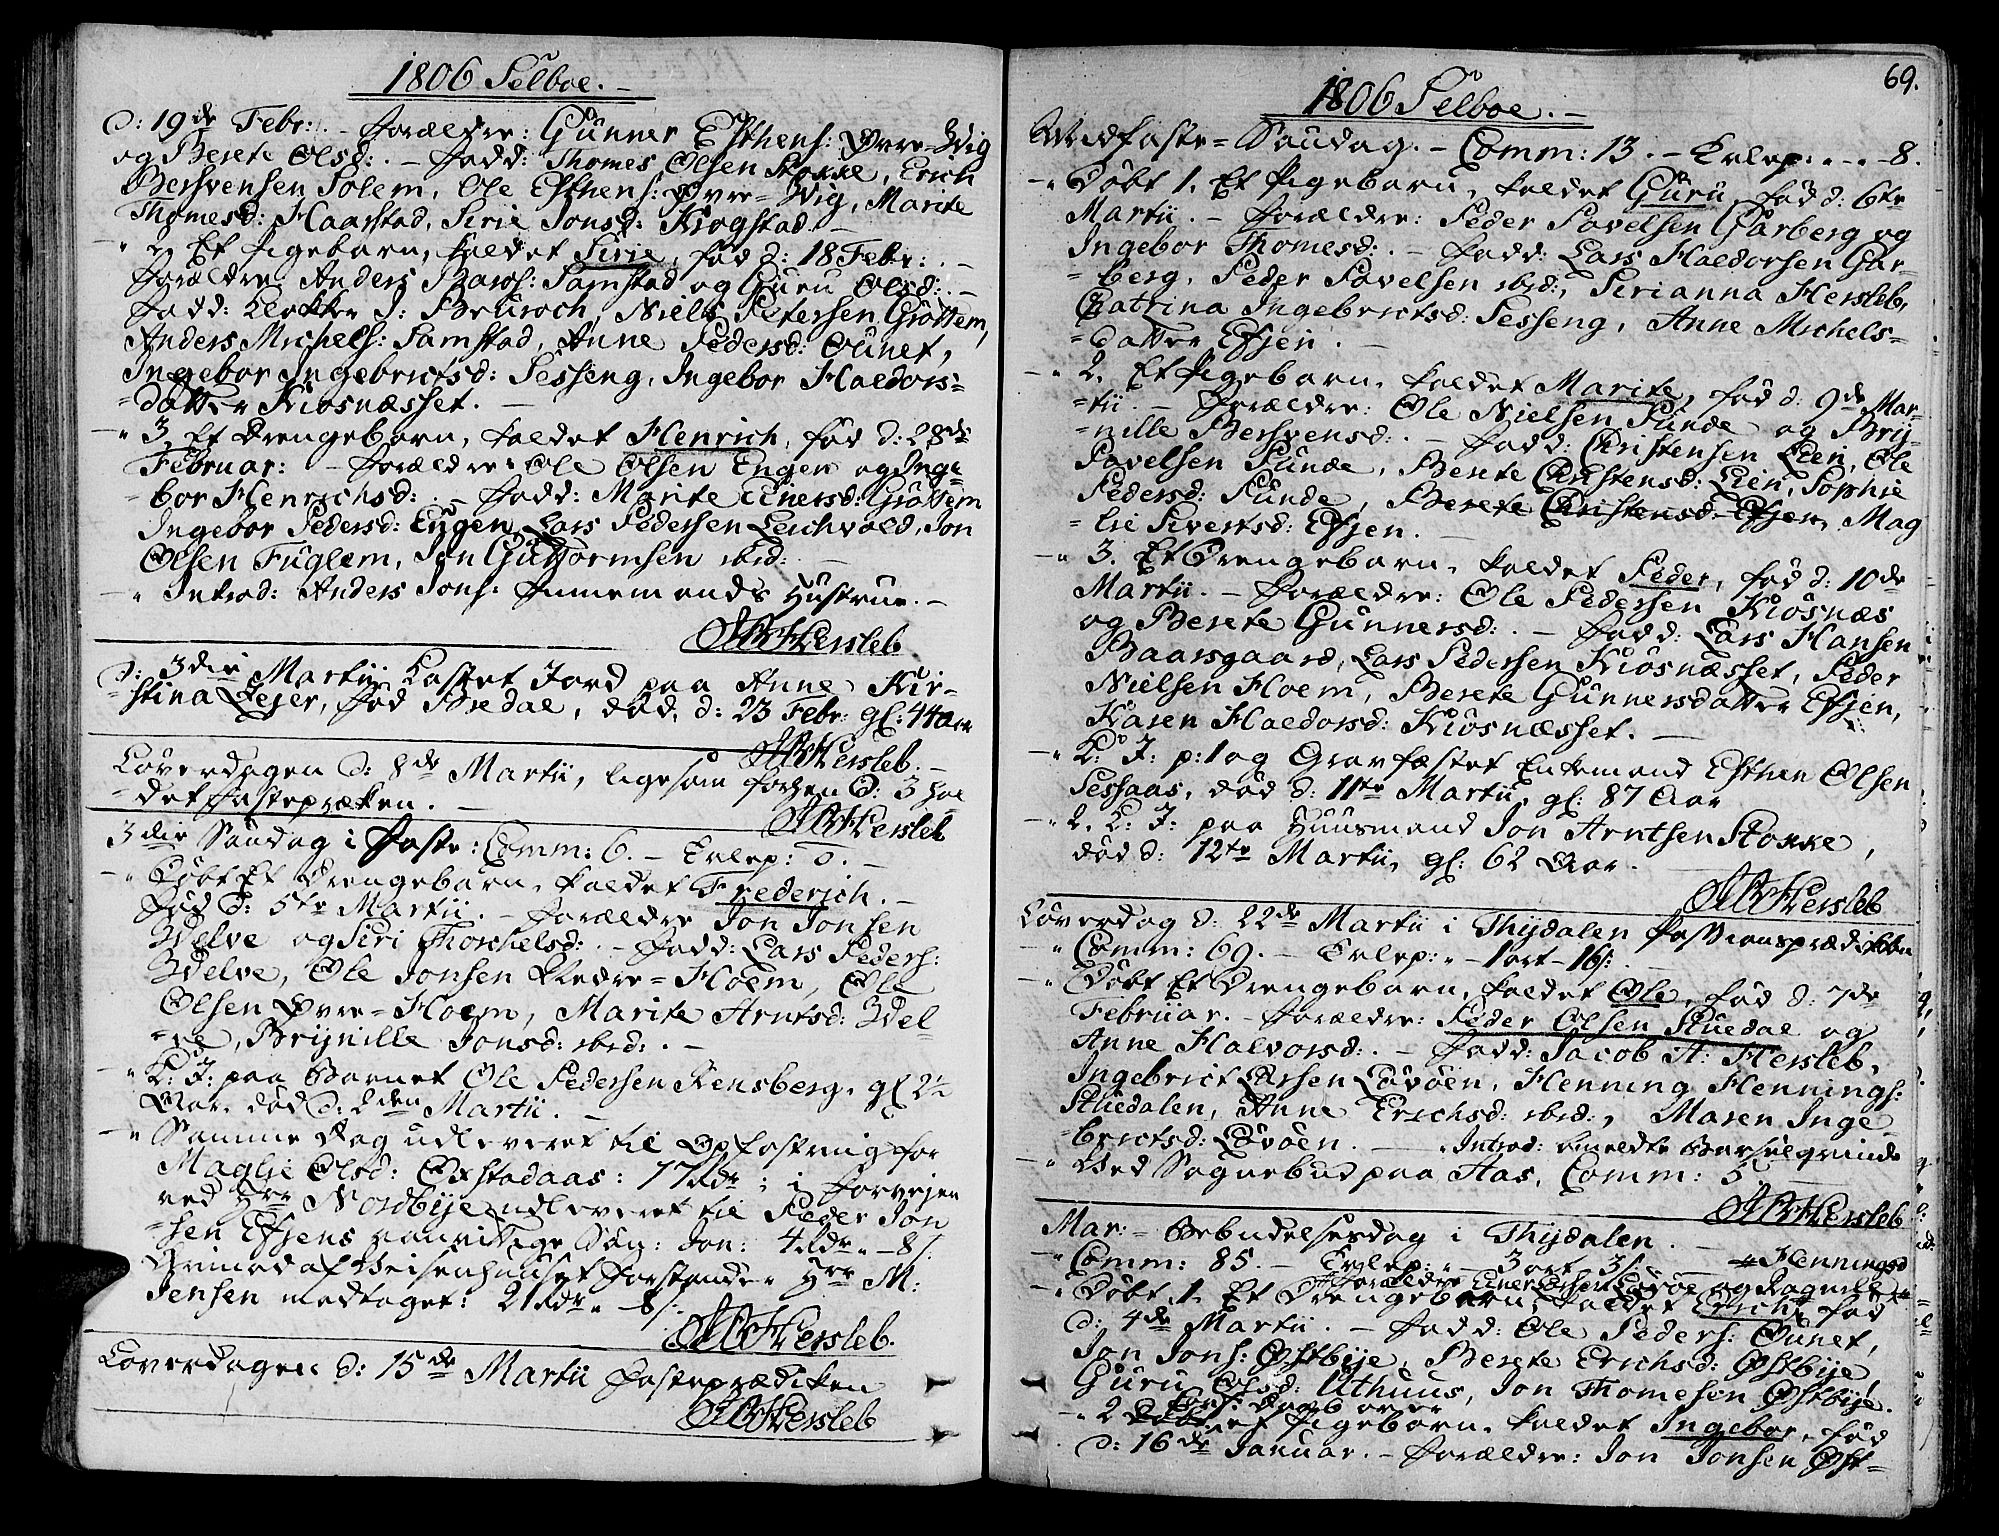 1806 Selboe. -
d: 19de Febr: - Forældre: Gunner Esthens: Øvre=Wig
og Berete Olsd: . - Fadd: Thomes Olsen Stokke, Erich
Bersvensen Solem, Ole Esthens: Øvre=Wig, Marite
Thomesd: Haarstad, Sirie Jonsd: Krogstad. -
-" 2, Et Pigebarn, kaldet Sirie, fød d: 18 Febr: . -
Forældre: Anders Baros: Samstad og Guru Olsd: . -
Fadd: Klokker J: Bruroch, Niels Petersen Grøttem,
Anders Michels: Samstad, Anne Pedersd: Ounet,
Ingebor Ingebrictsd: Sesseng, Ingebor Haldors=
=datter Kiøsnæsset. -
-" 3, Et Drengebarn, kaldet Henrich, fød d: 28de
Februar: - Forældre: Ole Olsen Engen og Inge
=bor Henrichsd: . - Fadd: Marite Einersd: Grøttem
Ingebor Pedersd: Eugen, Lars Pedersen Leichvold, Jon
Olsen Fuglem, Jon Guttormsen ibid: -
-" Introd: Anders Jons: Hustrue. -
JA Hersleb
d: 3die Martii kastet Jord paa Anne Kir=
=stina Lejer, fød Bredal, død, d: 23 Febr: gl: 44 aar
JA Hersleb. -
Løverdagen d: 8de Martii, ligesom forhen d: 3 hol
=det Fasteprækken. -
JA Hersleb
3die Søndag i Faste: Comm: 6. - Erlep: 0. -
-" Døbt Et Drengebarn, kaldet Frederich. -
Fød d: 5te Martii. - Forældre Jon Jonsen
Welve og Siri Thorkelsd: . - Fadd: Lars Peders:
Welve, Ole Jonsen Nedre=Hoem, Ole
Olsen Øvre=Hoem, Marite Arntsd: Wel=
=ve, Brynille Jonsd: ibid: . -
-" K: J: paa Barnet Ole Pedersen Rensberg, gl 2½
Aar, død d: 2den Martii. -
-" Samme Dag udleveret til Opfostring for
Maglie Olsd: Oxstadaas: 17 Rdr; i Forvejen
ved Hrr Nordbye udleveret til Peder Jon
=sen Efsens vanvittige Søn: Jon: 4 Rdr. - 8/.
Hrr M:
Jensen modtaget: 21 Rdr. - 8/.
JA Hersleb.
Løverdagen d: 15de Martii Fasteprædiken
JA Hersleb
69.
1806 Selboe. -
Midfaste=Søndag. - Comm: 13. - Erlep: . - . - 8.
-" Døbt 1, Et Pigebarn, kaldet Guru, fød d: 6te
Martii. - Forældre: Peder Povelsen Garberg og
Ingebor Thomesd: . - Fadd: Lars Haldorsen Gar=
=berg, Peder Povelsen ibid:, Sirianna Hersleb,
Catrina Ingebrictsd: Sesseng, Anne Michels=
=datter Efsen. -
-" 2, Et Pigebarn, kaldet Marite, fød d: 9de Mar=
=tii. - Forældre: Ole Nielsen Sunde og Bry=
=nille Bersvensd: . - Fadd: Christensen Lien, Ole
Povelsen Sunde, Berete Christensd: Lien, Sophie
Pedersd: Sunde, Berete Christensd: Efsen, Mag
=lie Sivertsd: Efsen. -
-" 3. Et Drengebarn, kaldet Peder, fød d: 10de
Martii. - Forældre: Ole Pedersen Kiøsnæs
og Berete Gunnersd: . - Fadd: Lars Hansen
Baarsgaard, Lars Pedersen Kiøsnæsset, Peder
Nielsen Hoem, Berete Gunnersdatter Efsen,
Karen Haldorsd: Kiøsnæsset. -
-" K: J: p: 1 og Gravfæstet Enkemand Esthen Olsen
Sessaas, død d: 11te Martii, gl: 87 Aar
-" 2. K: J: paa Huusmand Jon Arntsen Stokke,
død d: 12te Martii, gl: 62 Aar. -
JA Hersleb
Løverdag d: 22de Martii i Thydalen Passionsprædikken
-" Comm: 69. - Erlep: - 1 ort - 16/.
-" Døbt Et Drengebarn, kaldet Ole, fød d: 7de
Februar. - Forældre: Peder Olsen Stuedal og
Anne Halvorsd: . - Fadd: Jacob A: Hersleb,
Ingebrict Larsen Løvøen, Henning Hennings:
Stuedalen, Anne Erichsd: ibid:, Maren Inge=
=brictsd: Løvøen. - Introd: Barselqvinde
-" Ved Sognebud paa Aas, Comm: 5
JA Hersleb
Mar: Bebudelsesdag i Thydalen. -
-" Comm: 85. - Erlep: - 3 ort 3/. - Henningsd
Forældre Einer Larsen Løvøe og Ragnille
-" Døbt 1. Et Drengebarn, kaldet Erich, fød
d: 4de Martii. - Fadd: Ole Peders: Ounet,
Jon Jons: Østbye, Berete Erichsd: Østbye,
Guru Olsd: Uthuus, Jon Thomesen Østbye.
-" 2 Et Pigebarn, kaldet Ingebor, fød
d: 16de Januar. - Forældre: Jon Jonsen Øst=